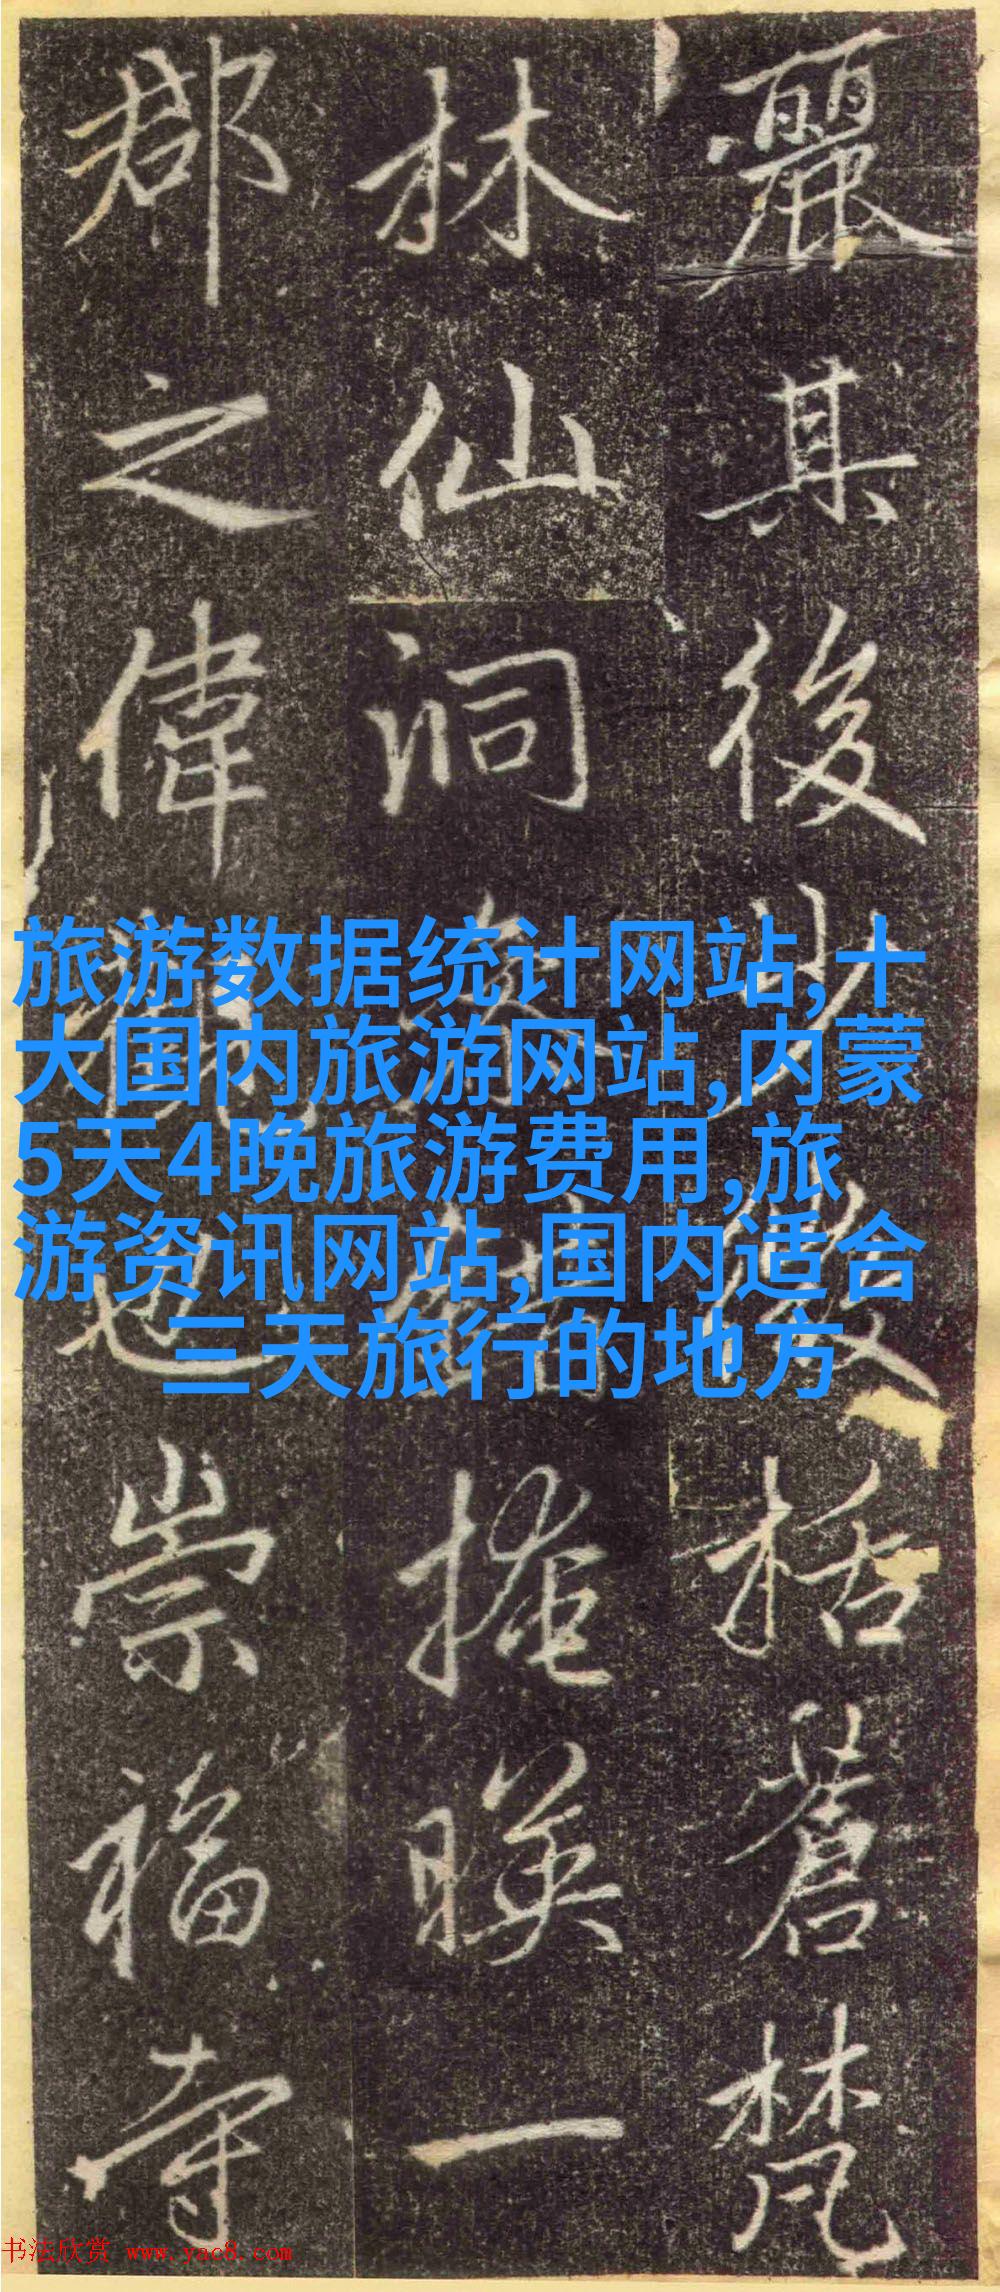 麗其後少微括蒼梵
林仙洞掩暎一
郡之偉觀也崇福寺
旅游数据统计网站,十
大国内旅游网站,内蒙
5天4晚旅游费用,旅
游资讯网站,国内适合
三天旅行的地方
书法欣赏 www.yac8.com